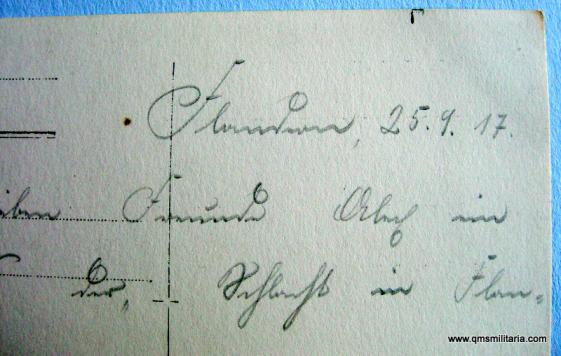 Flandern, 25.9.17.
Freunde Abel in
der Schlacht in Flan=
www.qmsmilitaria.com